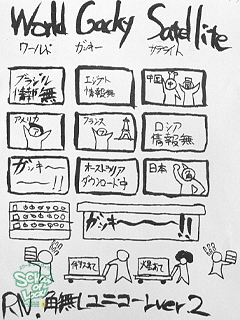 World Gacky Satellite
ワールド ガッキー サテライト
ブラジル 情報無
エジプト 情報無
中国
アメリカ
フランス
ロシア 情報無
ガッキ〜〜!!
オーストラリア ダウンロード中
日本
ガッキ〜〜!!
RN.角無しユニコーンver.2